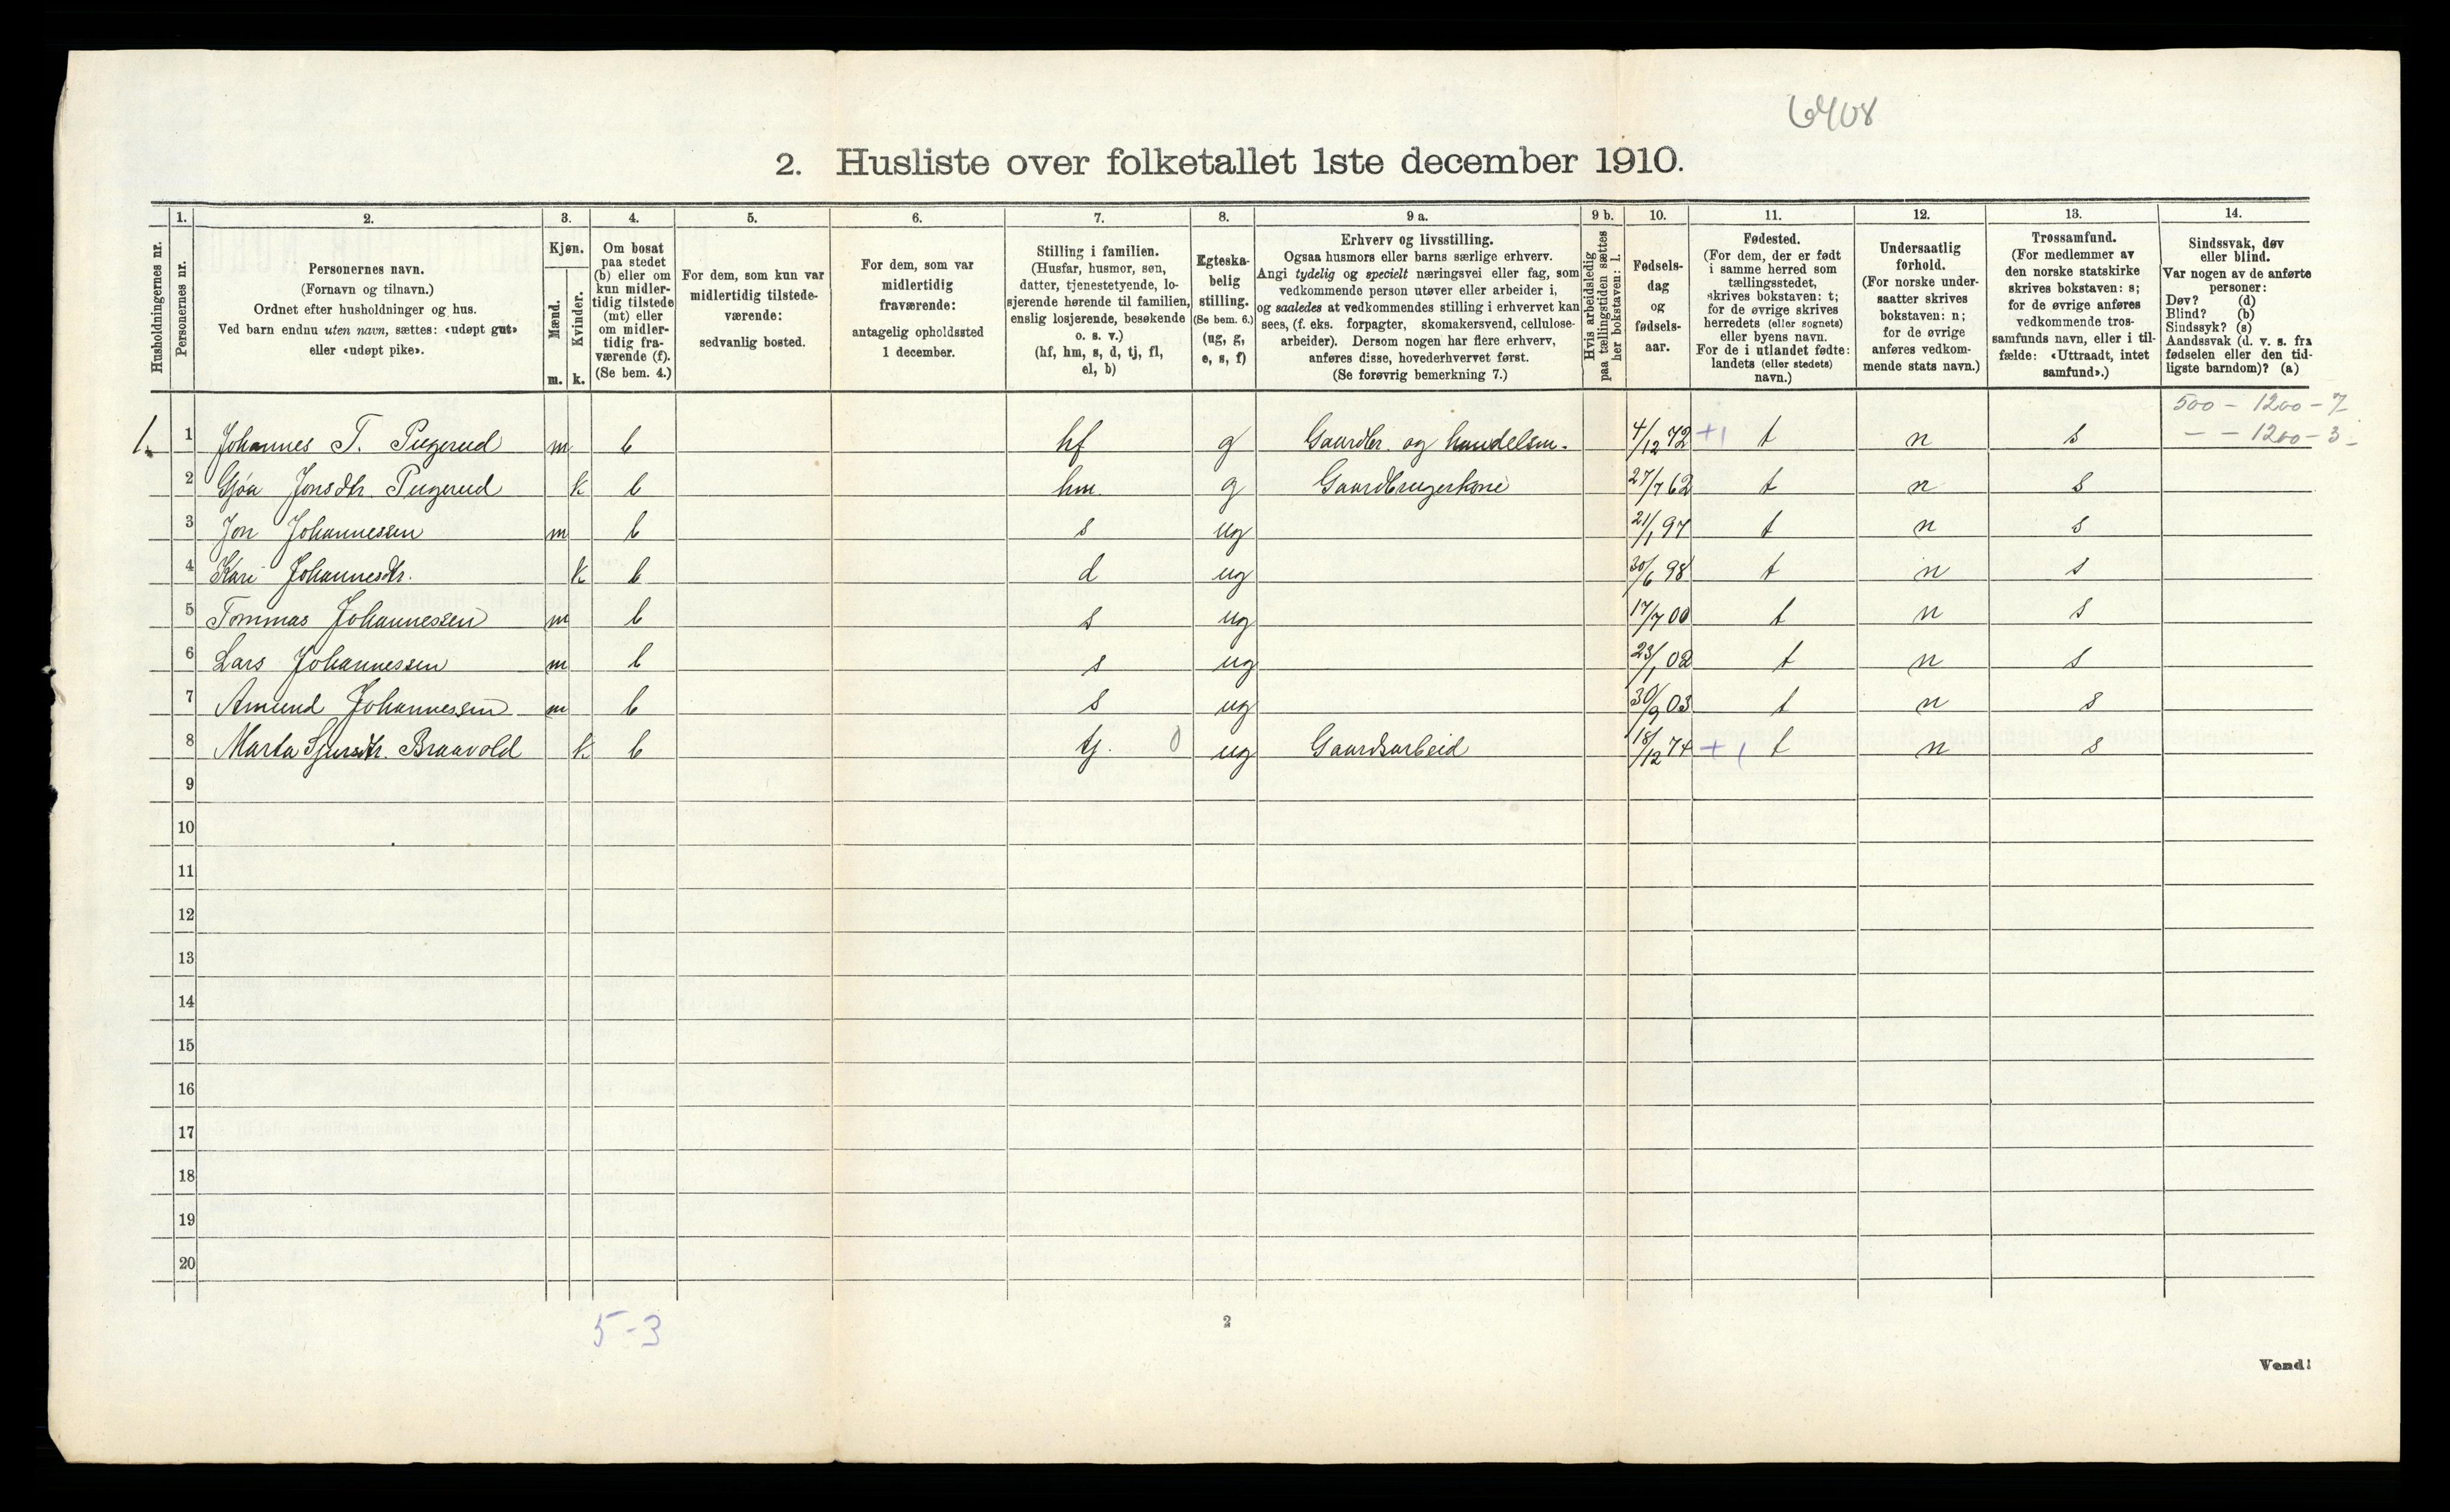 6408
2. Husliste over folketallet 1ste december 1910.
Husholdningernes nr.
1.
Personernes nr.
2.
Personernes navn.
(Fornavn og tilnavn.)
Ordnet efter husholdninger og hus.
Ved barn endnu uten navn, sættes: «udøpt gut»
eller «udøpt pike».
3.
Kjøn.
Mænd.
Kvinder.
m. k.
4.
Om bosat
paa stedet
(b) eller om
kun midler-
tidig tilstede
(mt) eller
om midler-
tidig fra-
værende (f).
(Se bem. 4.)
5.
For dem, som kun var
midlertidig tilstede-
værende:
sedvanlig bosted.
6.
For dem, som var
midlertidig
fraværende:
antagelig opholdssted
1 december.
7.
Stilling i familien.
(Husfar, husmor, søn,
datter, tjenestetyende, lo-
sjerende hørende til familien,
enslig losjerende, besøkende
o. s. v.)
(hf, hm, s, d, tj, fl,
el, b)
8.
Egteska-
belig
stilling.
(Se bem. 6.)
(ug, g,
e, s, f)
9 a.
Erhverv og livsstilling.
Ogsaa husmors eller barns særlige erhverv.
Angi tydelig og specielt næringsvei eller fag, som
vedkommende person utøver eller arbeider i,
og saaledes at vedkommendes stilling i erhvervet kan
sees, (f. eks. forpagter, skomakersvend, cellulose-
arbeider). Dersom nogen har flere erhverv,
anføres disse, hovederhvervet først.
(Se forøvrig bemerkning 7.)
9 b.
Hvis arbeidsledig
paa tællingstiden sættes
her bokstaven: l.
10.
Fødsels-
dag
og
fødsels-
aar.
11.
Fødested.
(For dem, der er født
i samme herred som
tællingsstedet,
skrives bokstaven: t;
for de øvrige skrives
herredets (eller sognets)
eller byens navn.
For de i utlandet fødte:
landets (eller stedets)
navn.)
12.
Undersaatlig
forhold.
(For norske under-
saatter skrives
bokstaven: n;
for de øvrige
anføres vedkom-
mende stats navn.)
13.
Trossamfund.
(For medlemmer av
den norske statskirke
skrives bokstaven: s;
for de øvrige anføres
vedkommende tros-
samfunds navn, eller i til-
fælde: «Uttraadt, intet
samfund».)
14.
Sindssvak, døv
eller blind.
Var nogen av de anførte
personer:
Døv? (d)
Blind? (b)
Sindssyk? (s)
Aandssvak (d. v. s. fra
fødselen eller den tid-
ligste barndom)? (a)
500 - 1200 - 7
1. 1 Johannes T. Pugerud m b hf g Gaardbr. og handelsm. 4/12 72 +1 t n s - - 1200 - 3 -
2 Gjøa Jonsdtr. Pugerud k b hm. g Gaardbrugerkone 27/7 62 t n s
3 Jon Johannessen m b s ug 21/1 97 t n s
4 Kari Johannesdtr. k b d ug 30/6 98 t n s
5 Tommas Johannessen m b s ug 17/7 00 t n s
6 Lars Johannessen m b s ug 23/1 02 t n s
7 Amund Johannessen m b s ug 30/9 03 t n s
8 Marta Sjursdtr. Braavold k b tj. 0 ug Gaardsarbeid 18/12 74 +1 t n s
9
10
11
12
13
14
15
16
17
18
19
20
5-3
2
Vend!